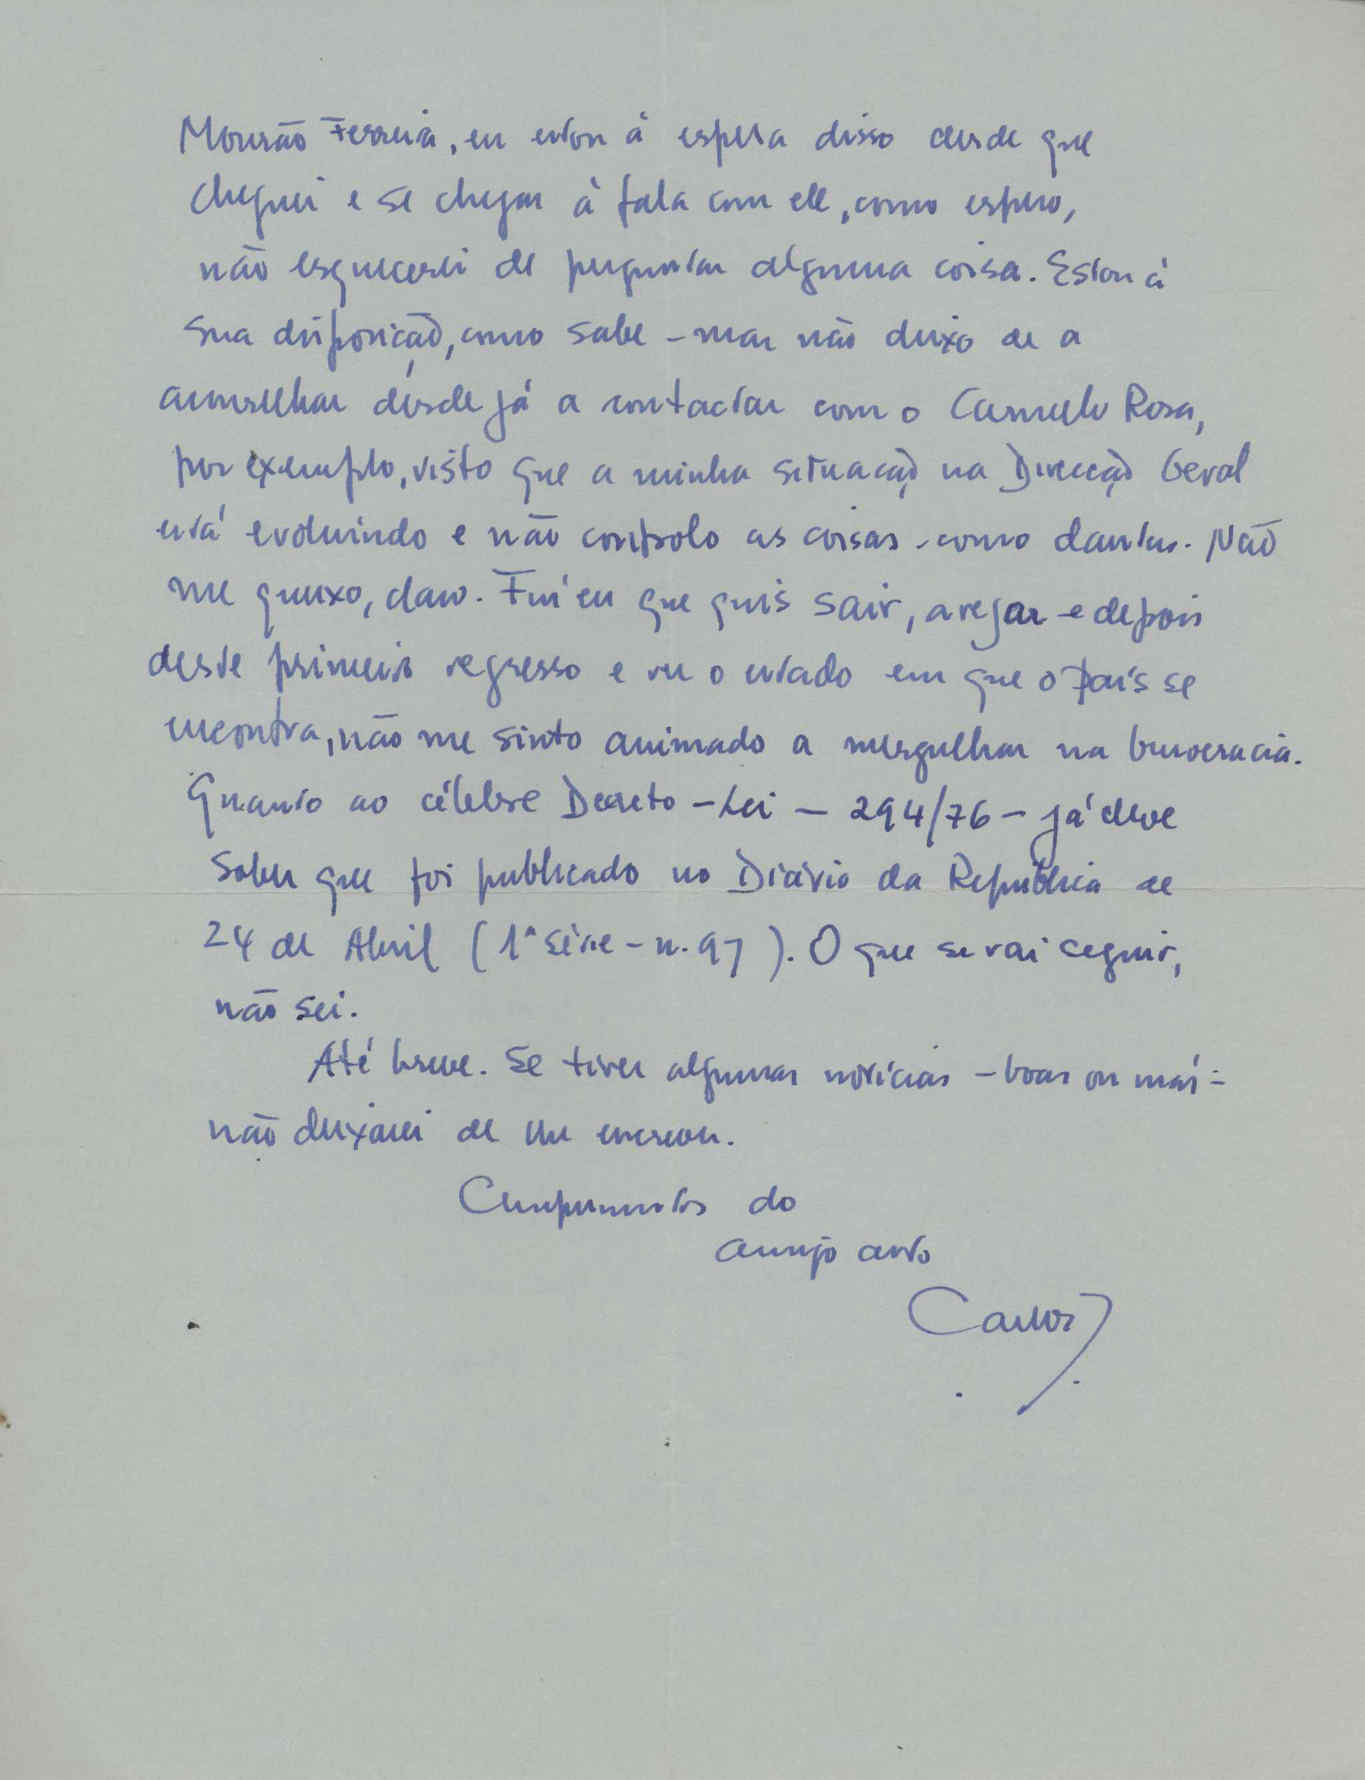 Mourão Ferreira, eu estou à espera disso desde que
cheguei e se chegar à fala com ele, como espero,
não esquecerei de perguntar alguma coisa. Estou à
sua disposição, como sabe – mas não deixo de a
aconselhar desde já a contactar com o Carmelo Rosa,
por exemplo, visto que a minha situação na Direcção Geral
está evoluindo e não controlo as coisas como dantes. Não
me queixo, claro. Fui eu que quis sair, arejar e depois
deste primeiro regresso e ver o estado em que o País se
encontra, não me sinto animado a mergulhar na burocracia.
Quanto ao célebre Decreto-Lei – 294/76 – já deve
saber que foi publicado no Diário da República de
24 de Abril (1ª série – n. 97). O que se vai seguir,
não sei.
Até breve. Se tiver algumas notícias – boas ou más –
não deixarei de lhe escrever.
Cumprimentos do
amigo certo
Carlos